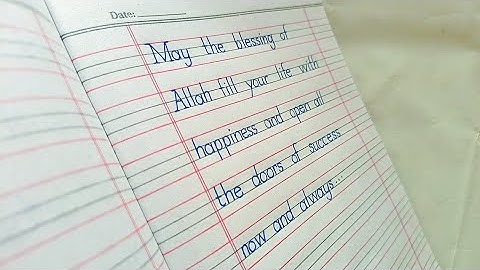 Date:
May the blessing of
Allah fill your life with
happiness and open all
the doors of success
now and always...